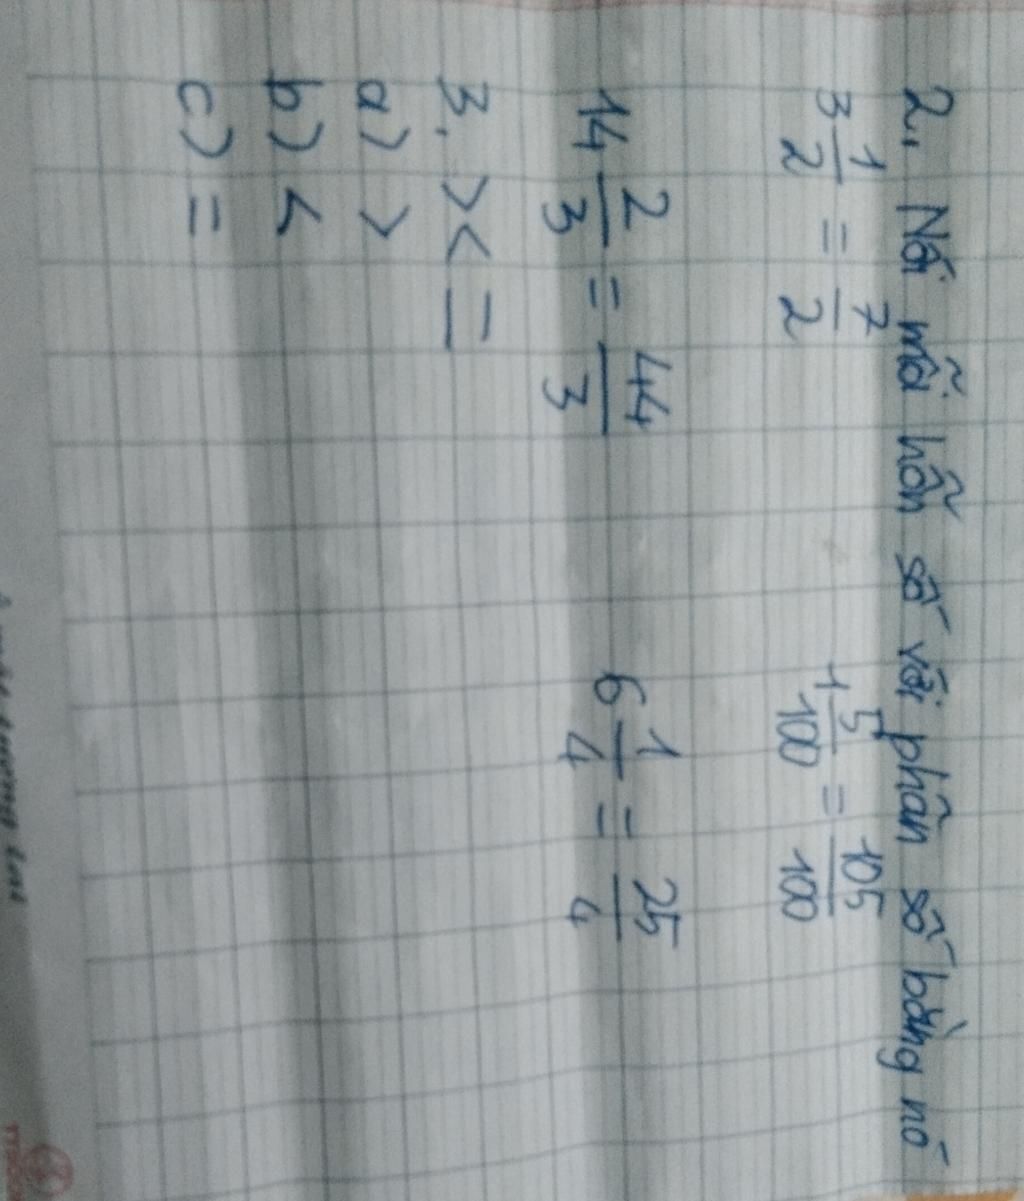 2, Nối mỗi hỗn số với phân số bằng nó
3 1/2 = 7/2 1 5/100 = 105/100
14 2/3 = 44/3 6 1/4 = 25/4
3. > < =
a) >
b) <
c) =